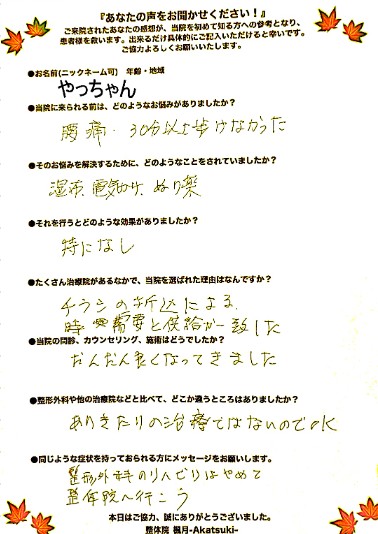 『あなたの声をお聞かせください！』
ご来院されたあなたの感想が、当院を初めて知る方への参考となり、
患者様を救います。出来るだけ具体的にご記入いただけると幸いです。
ご協力よろしくお願いいたします。
●お名前(ニックネーム可) 年齢・地域
やっちゃん
●当院に来られる前は、どのようなお悩みがありましたか？
腰痛・30分以上歩けなかった
●そのお悩みを解決するために、どのようなことをされていましたか？
湿布、電気かけ、ぬり薬
●それを行うとどのような効果がありましたか？
特になし
●たくさん治療院があるなかで、当院を選ばれた理由はなんですか？
チラシの折込による
時 需要と供給が一致した
●当院の問診、カウンセリング、施術はどうでしたか？
だんだん良くなってきました
●整形外科や他の治療院などと比べて、どこか違うところはありましたか？
ありきたりの治療ではないのでOK
●同じような症状を持っておられる方にメッセージをお願いします。
整形外科のリハビリはやめて
整体院へ行こう
本日はご協力、誠にありがとうございました。
整体院 楓月-Akatsuki-